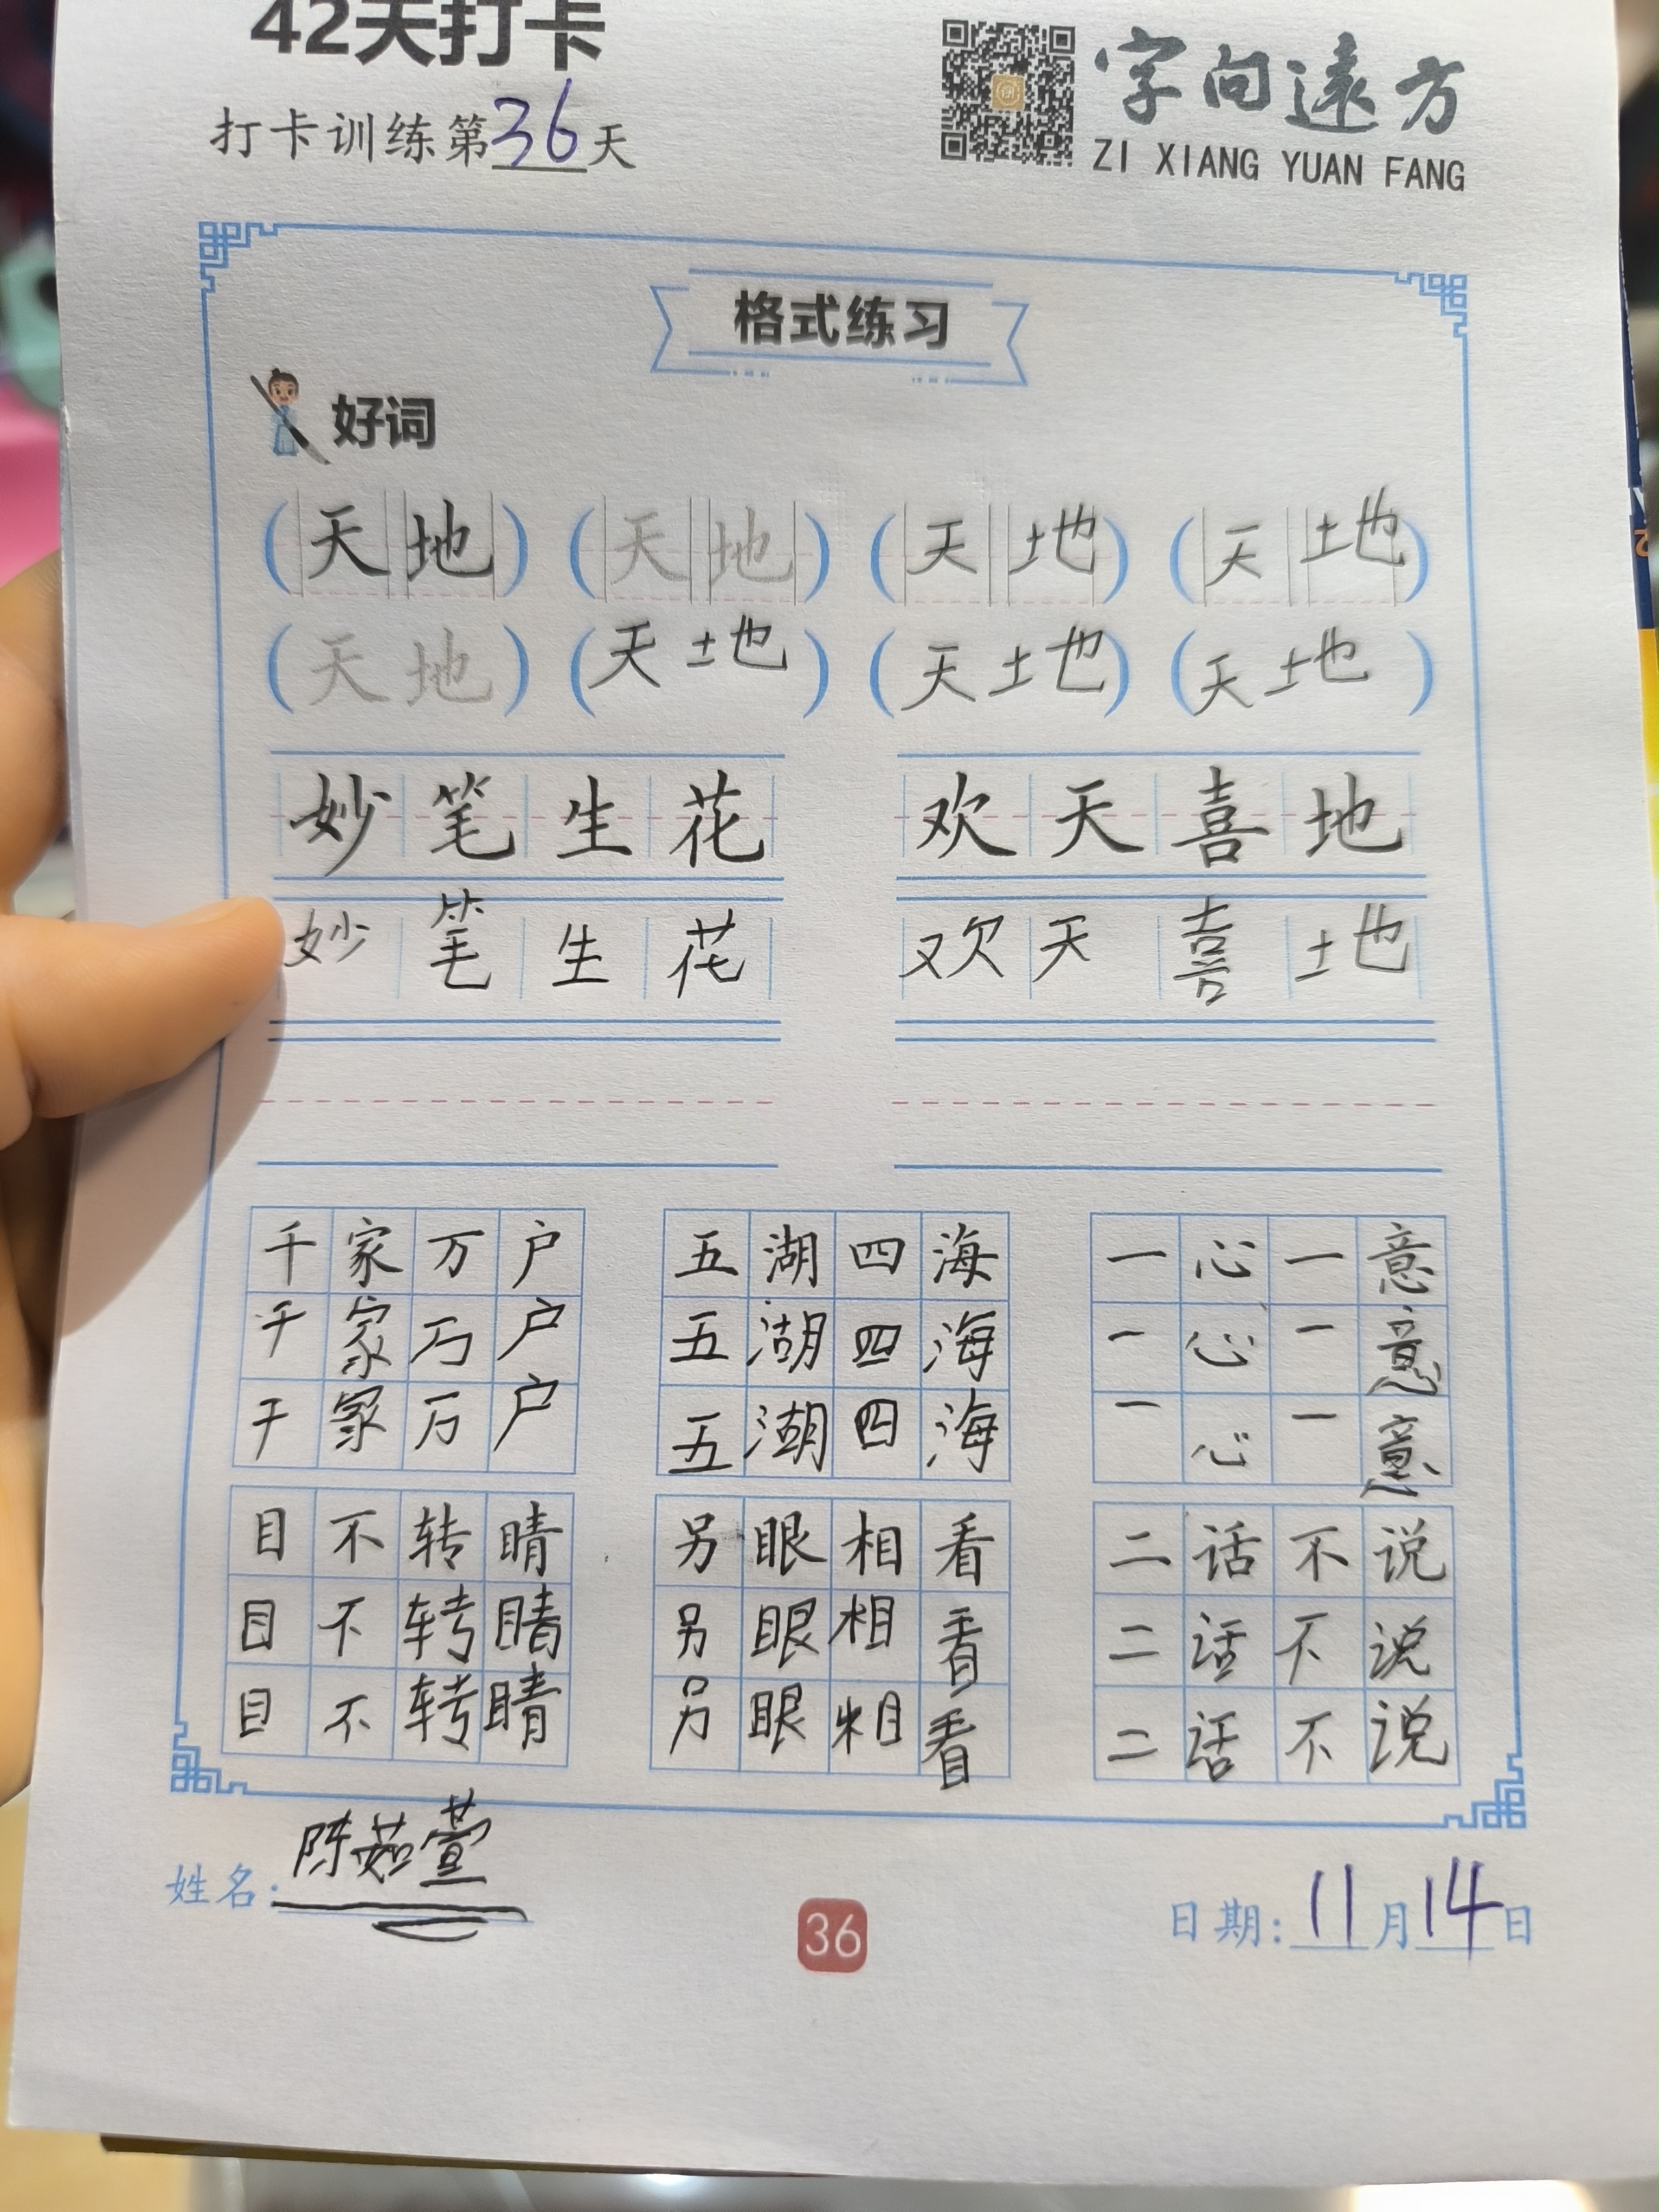 42天打卡
打卡训练第36天
字向遠方
ZI XIANG YUAN FANG
格式练习
好词
(天地) (天地) (天地) (天地)
(天地) (天地) (天地) (天地)
妙笔生花 欢天喜地
妙笔生花 欢天喜地
千家万户 五湖四海 一心一意
千家万户 五湖四海 一心一意
千家万户 五湖四海 一心一意
目不转睛 另眼相看 二话不说
目不转睛 另眼相看 二话不说
目不转睛 另眼相看 二话不说
姓名:陈茹萱
36
日期:11月14日